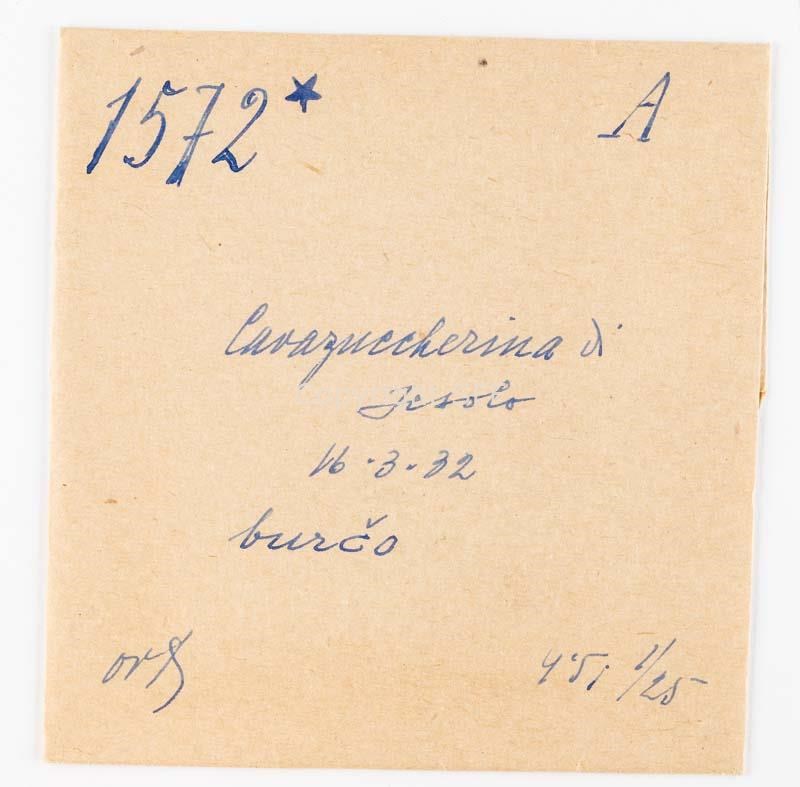 1572* A
Cavazuccherina di
Jesolo
16.3.32
burčo
1/25